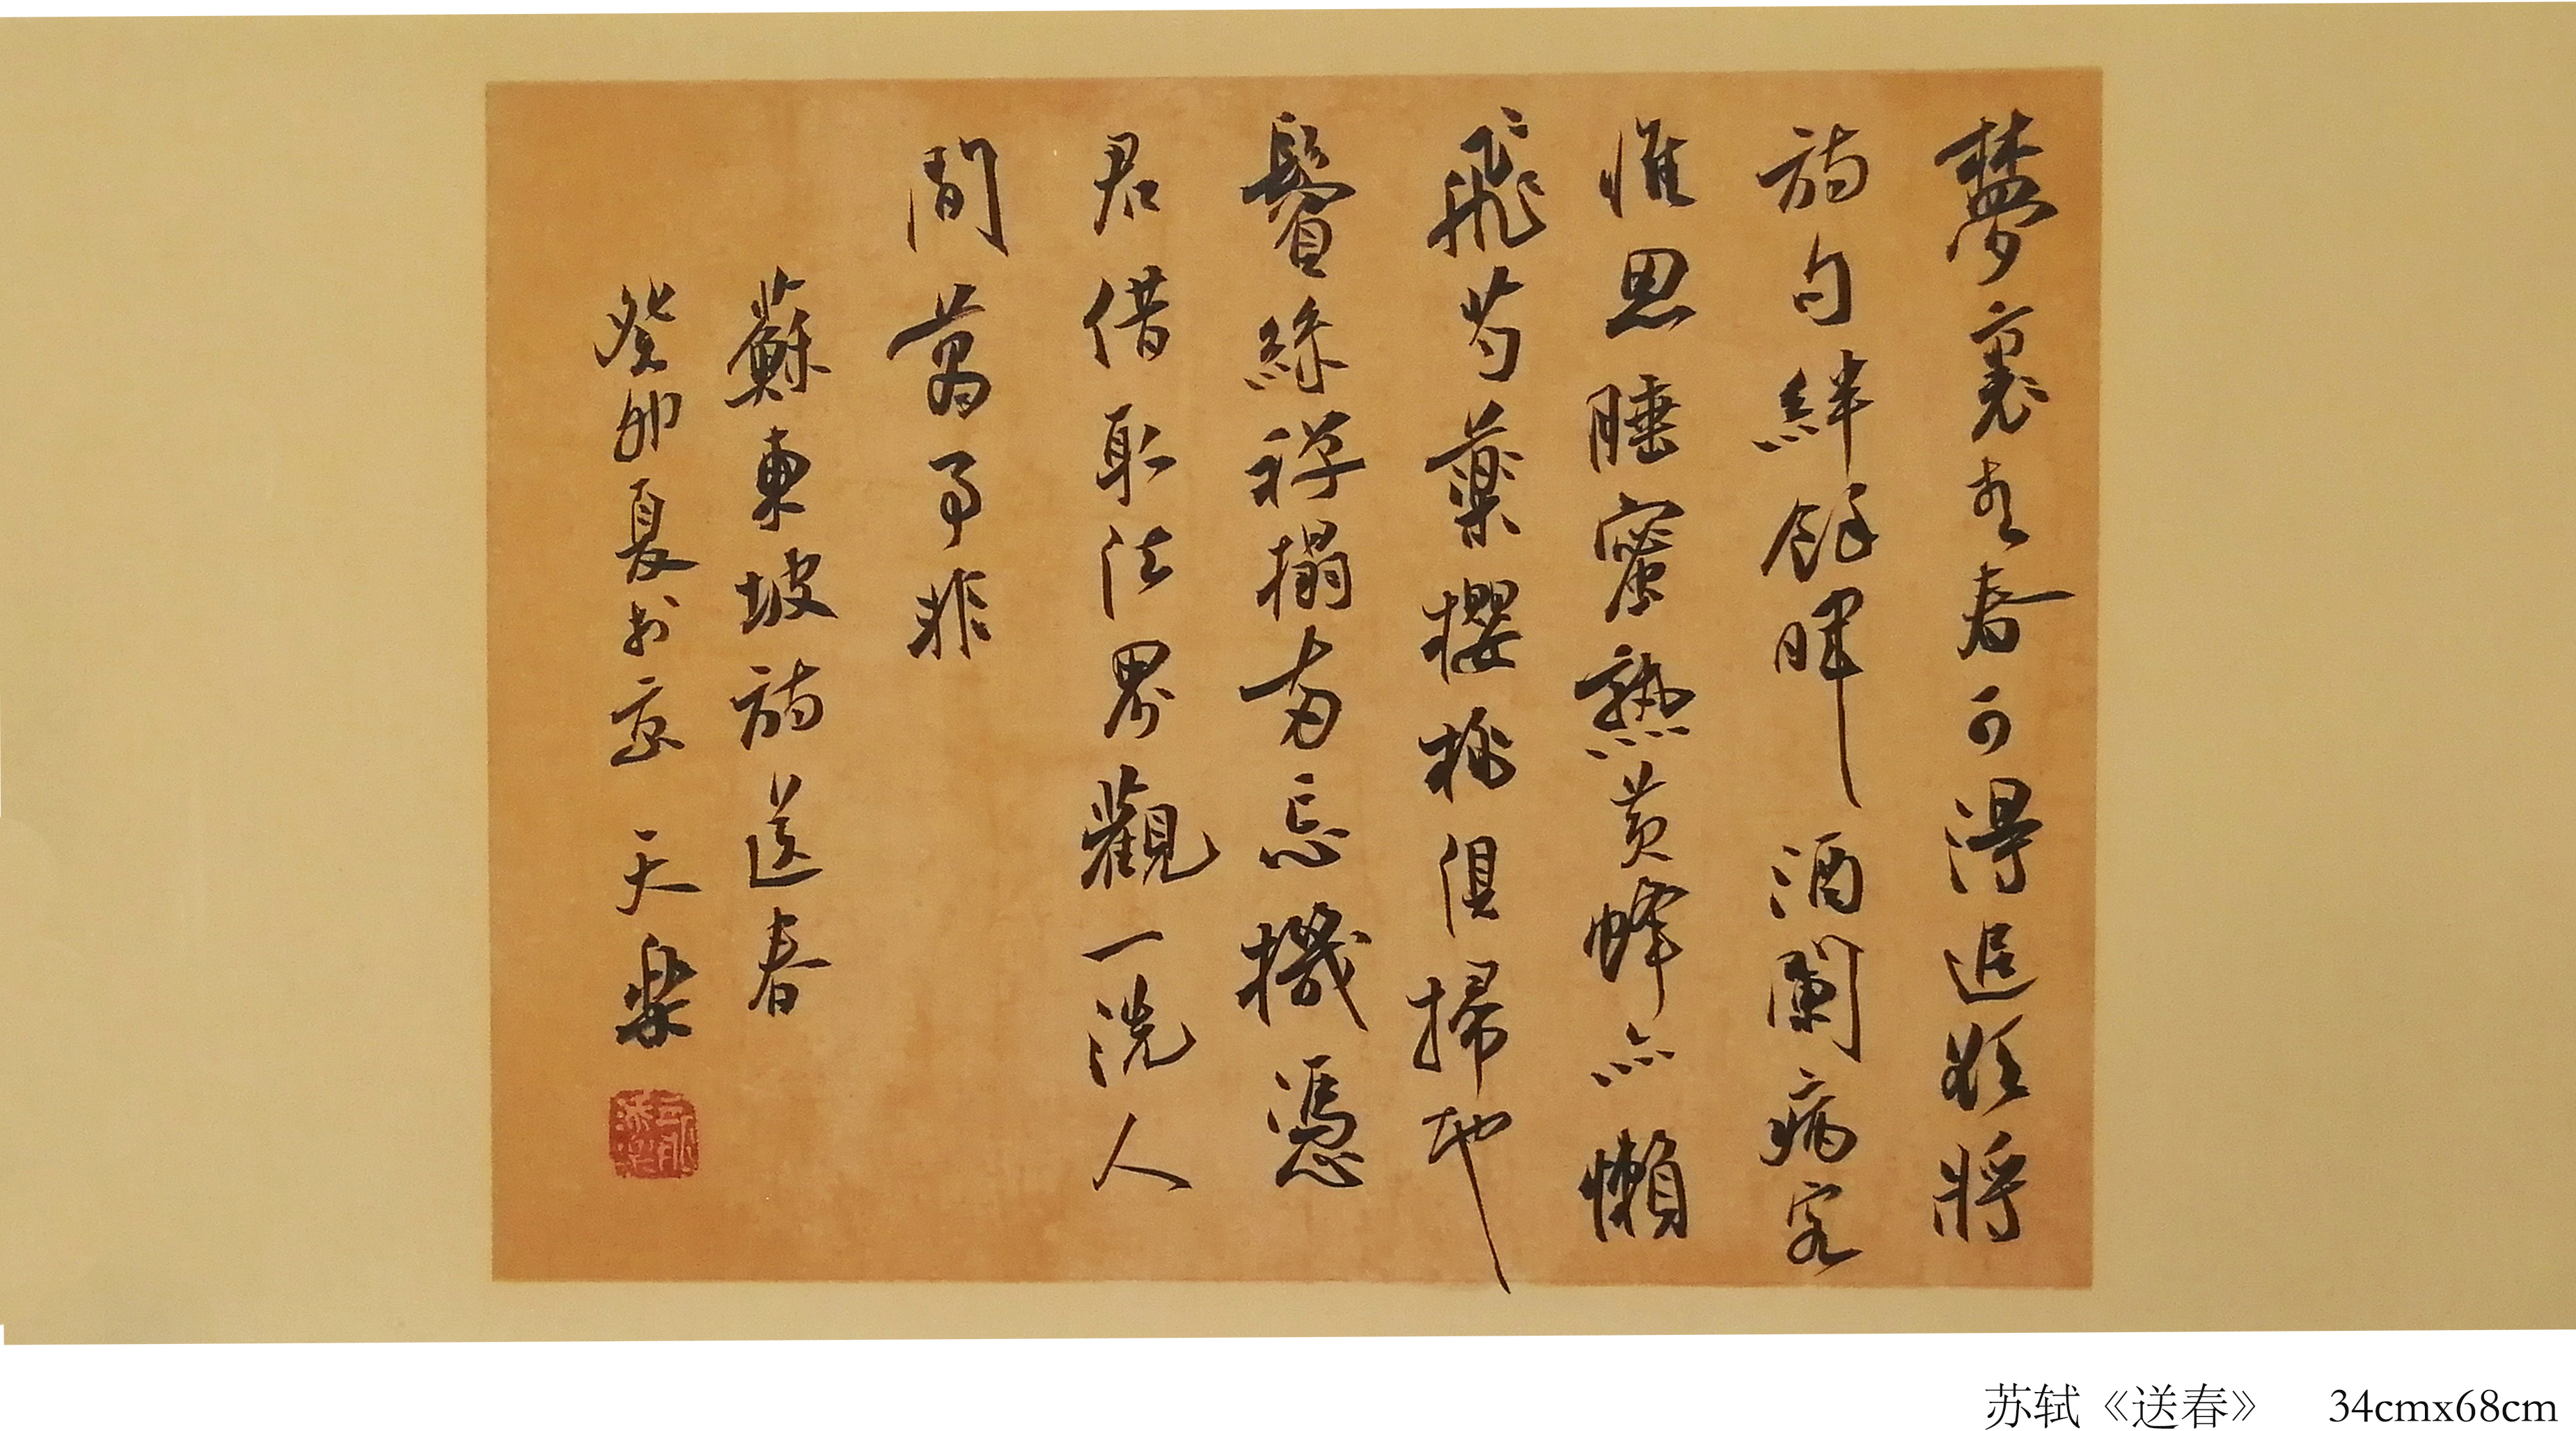 夢裏青春可得追欲將
詩句絆餘暉酒闌病客
惟思睡蜜熟黃蜂亦懶
飛芍藥櫻桃俱掃地
鬢絲禪榻兩忘機憑
君借取法界觀一洗人
間萬事非
蘇東坡詩送春
癸卯夏書於京 天樂
苏轼《送春》 34cmx68cm